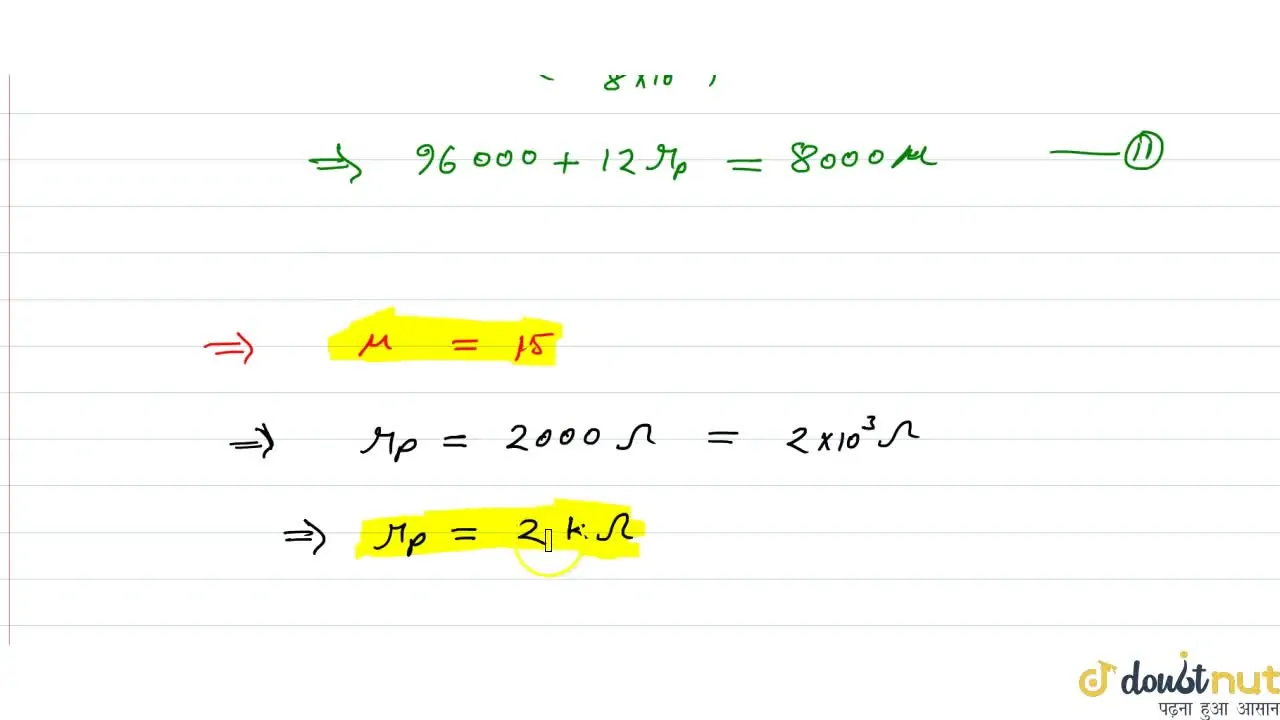 8×10
⇒ 96000 + 12 rp = 8000 μ —— (11)
⇒ μ = 15
⇒ rp = 2000 Ω = 2×10³ Ω
⇒ rp = 2 k Ω
doubtnut
पढ़ना हुआ आसान